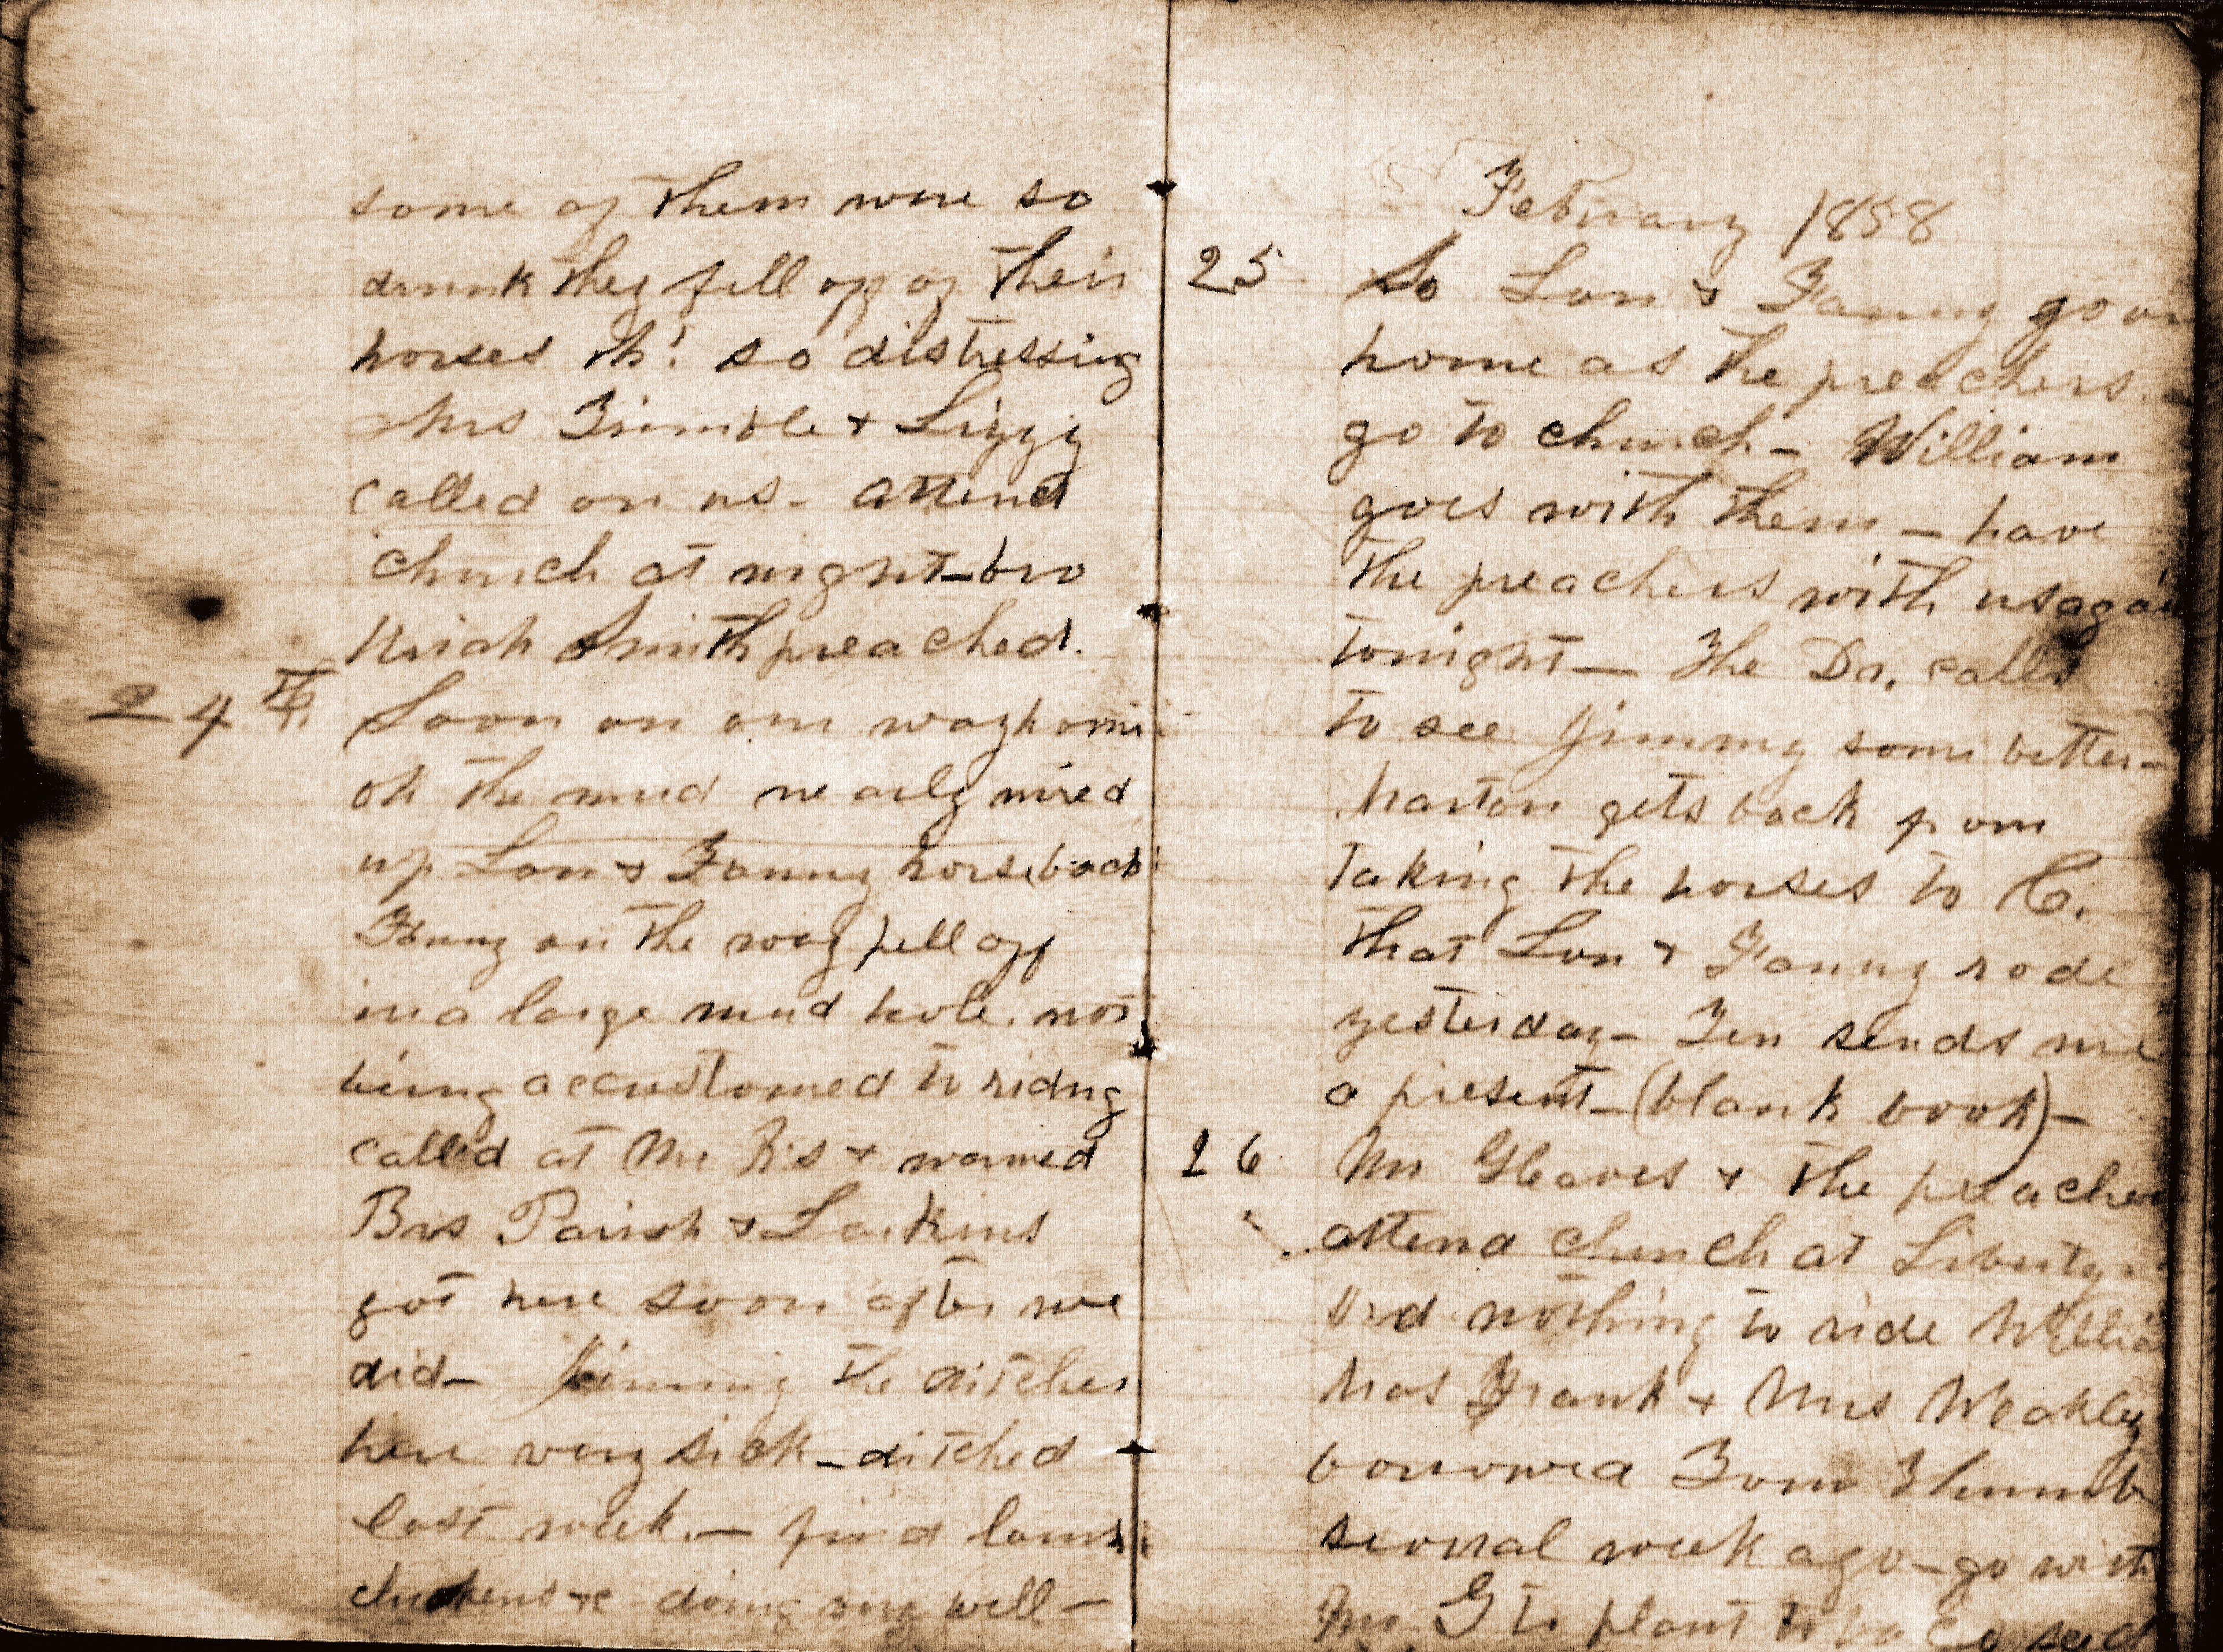 some of them were so
drunk they fell off of their
horses oh! so distressing
Mrs Trimble & Lizzy
called on us - attend
church at night - bro
Uriah Smith preached.
24th Soon on our way home
oh the mud nearly mired
up Lon & Fanny horseback
Fanny on the way fell off
in a large mud hole, not
being accustomed to ridng
called at Mr R's & warmed
Bros Parish & Larkins
got here soon after we
did - Jimmy the ditcher
here very sick - ditched
last week. - find lambs
chickens &c doing very well -
February 1858
25 So Lon & Fanny go on
home as the preachers
go to church - William
goes with them - have
the preachers with us again
tonight - The Dr. calls
to see Jimmy some better -
Marton gets back from
taking the horses to C.
that Lon & Fanny rode
yesterday - sends me
a present - (blank book) -
26 Mr Gleaves & the preachers
attend church at Liberty
and nothing to ride Willia
has Frank & Mrs Weakley
borrowed Tom Thumb
several week ago - go with
Mr G to plant tobacco seed